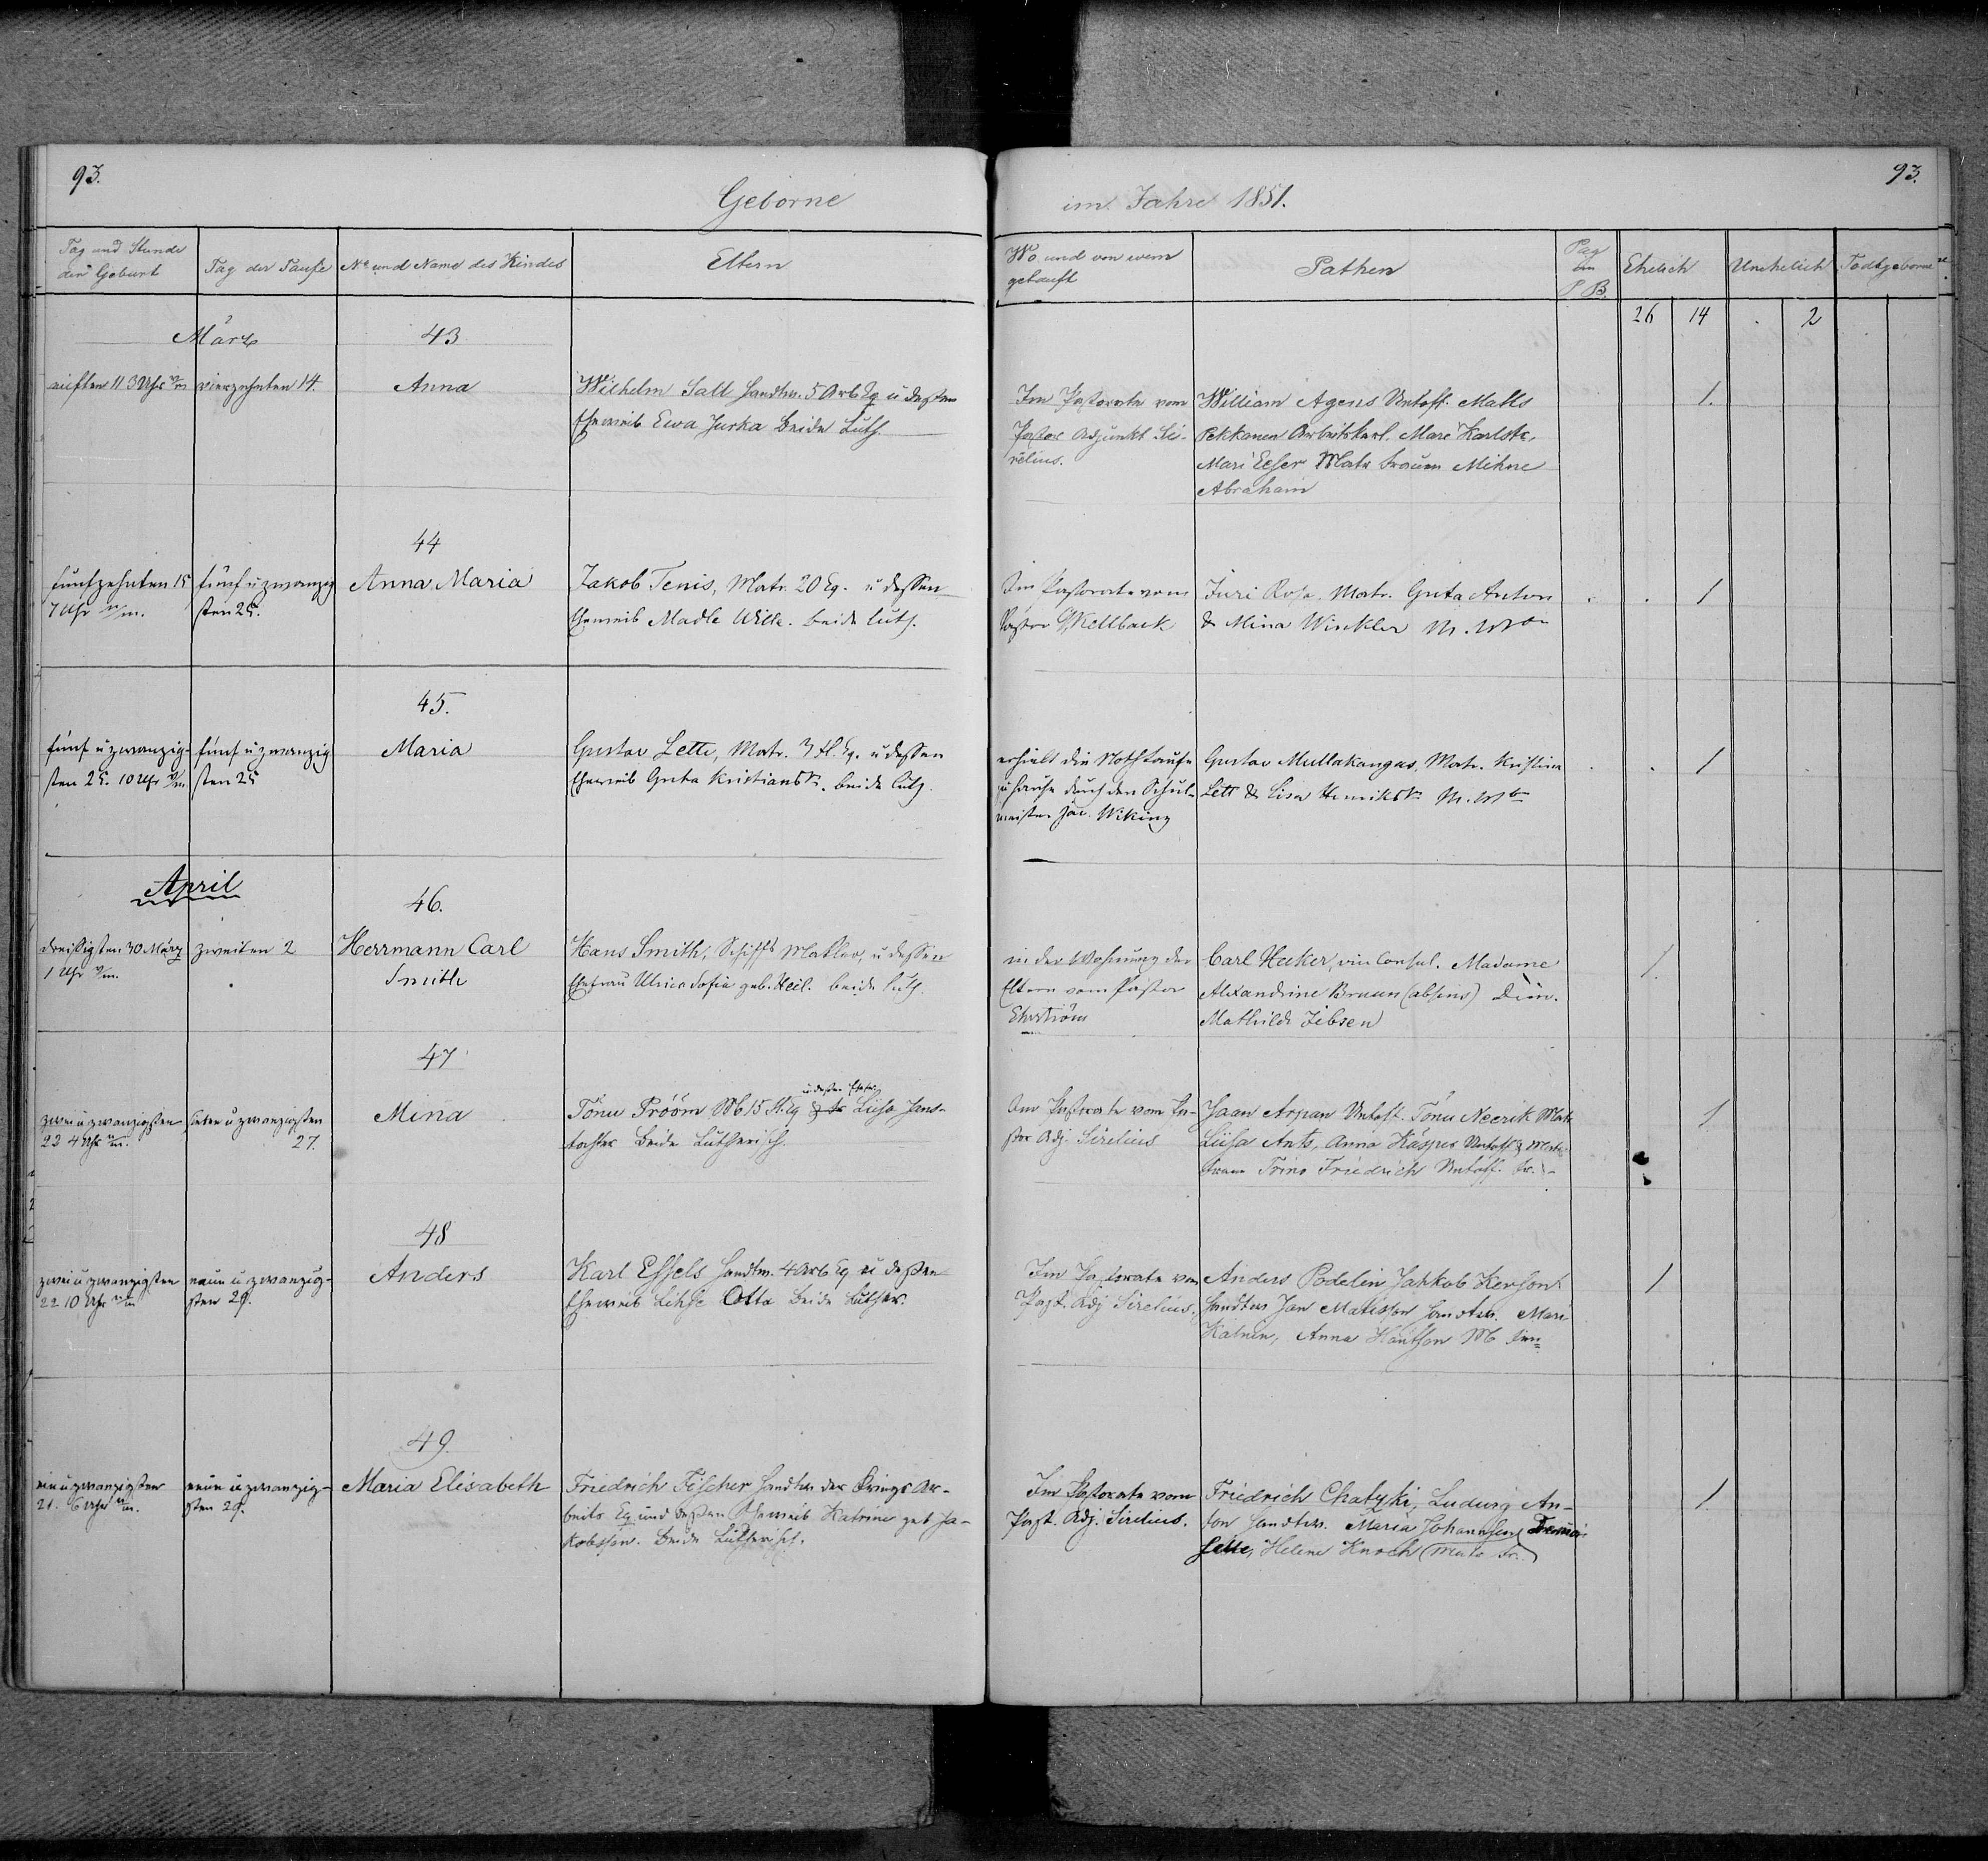 93.
93.
Geborne
im Jahre 1851.
Tag und Stunde
der Geburt
Tag der Taufe
No und Name des Kindes
Eltern
Wo und von wem
getauft
Pathen
Pag
im
P. B.
Ehelich
Unehelich
Todtgeborne
26 14 . 2
März
43
eilften 11 3 Uhr v/m
vierzehnten 14.
Anna
Wilhelm Sall Handtw. 5 Arb Eq u dessen
Eheweib Ewa Jurka Beide Luth.
Im Pastorate vom
Pastor Adjunkt Si-
relius.
William Agens Untoff. Matls
Pekkanen Arbeitskerl. Mare Karlstr.
Mari Eeser Matr frauen Mihne
Abraham
1.
44
fünfzehnten 15
7 Uhr n/m.
fünf u zwanzig
sten 25.
Anna Maria
Jakob Tenis, Matr. 20 Eq. u dessen
Eheweib Madle Wilk. beide luth.
Im Pastorate vom
Pastor G. Kellback
Juri Rosa, Matr. Greta Anton
& Mina Winkler M.
1
45.
fünf u zwanzig-
sten 25. 10 Uhr v/m
fünf u zwanzig
sten 25
Maria
Gustav Lette, Matr. 3 fl. Eq. u dessen
Eheweib Greta Kristianstr. beide luth.
erhielt die Nothtaufe
zu hause durch den Schul-
meister Jac. Wiking
Gustav Mullakangas, Matr. Kristina
Lett & Lisa Henrikstr M.
1
April
46.
dreißigsten 30 März
1 Uhr v/m.
zweiten 2
Herrmann Carl
Smith
Hans Smith, Schiffs Makler, u dessen
Ehefrau Ulrica Sofia geb. Heil. beide luth.
in der Wohnung der
Eltern vom Pastor
Ehrström
Carl Hecker, vice Consul. Madame
Alexandrine Bruun (absens) Dem.
Mathilde Jebsen
1.
47
zwei u zwanzigsten
22 4 Uhr n/m.
sieben u zwanzigsten
27.
Mina
u dessen Ehefr.
Tõnu Prööm M 15 fl. Eq Liisa Jans-
tochter Beide Lutherisch.
Im Pastorate vom Pa-
stor Adj. Sirelius
Jaan Arpan Untoff. Tõnu Neerik Matr
Liisa Ants, Anna Kasper Untoff. & Matr.
frauen Trino Friedrich Untoff. fr.
1
48
zwei u zwanzigsten
22 10 Uhr v/m
neun u zwanzig-
sten 29.
Anders
Karl Essels Handtw. 4 Arb Eq u dessen
Eheweib Lihse Otto Beide Luther.
Im Pastorate vom
Past. Adj Sirelius.
Anders Podelin Jahkob Kerson
Handtw Jan Matisson Handtw. Mari
Katnen, Anna Hantson M
1
49.
ein u zwanzigsten
21. 6 Uhr n/m.
neun u zwanzig-
sten 29.
Maria Elisabeth
Friedrich Fischer Handtw der Krings Ar-
beits Eq und dessen Eheweib Katrine geb Ja-
kobsson. Beide Lutherisch.
Im Pastorate vom
Past. Adj. Sirelius.
Friedrich Chatzki, Ludwig An-
ton Handtw. Maria Johannsen Demoi-
selle, Helene Knoch Matr fr.
1.